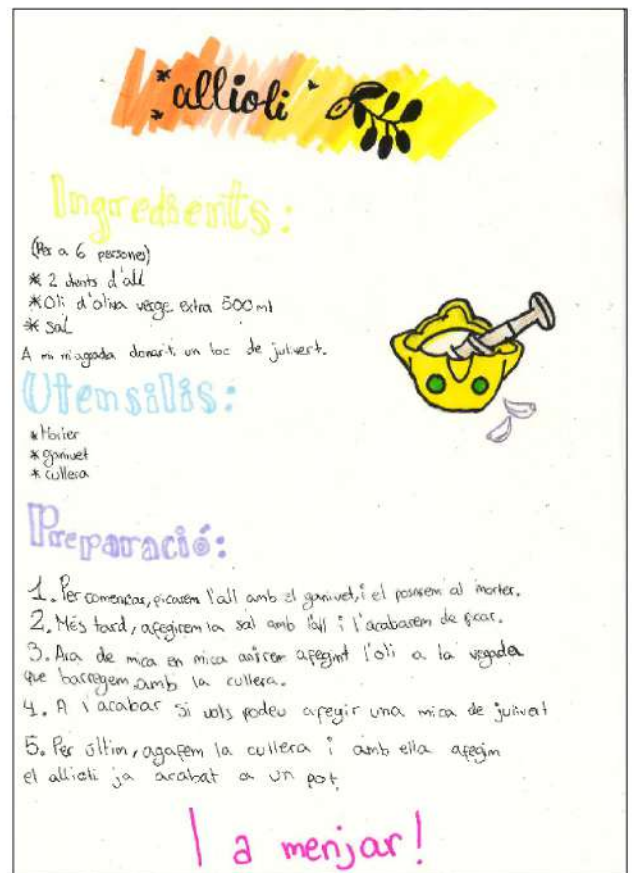 *allioli*
Ingredients:
(Per a 6 persones)
* 2 dents d'all
* Oli d'oliva verge extra 500ml
* sal
A mi m'agrada donar-li un toc de julivert.
Utensilis:
* Morter
* ganivet
* cullera
Preparació:
1. Per començar, picarem l'all amb el ganivet, i el posarem al morter.
2. Més tard, afegirem la sal amb l'all i l'acabarem de picar.
3. Ara de mica en mica anirem afegint l'oli a la vegada
que barregem amb la cullera.
4. A l'acabar si vols podeu afegir una mica de julivert
5. Per últim, agafem la cullera i amb ella afegim
el allioli ja acabat a un pot.
I a menjar!